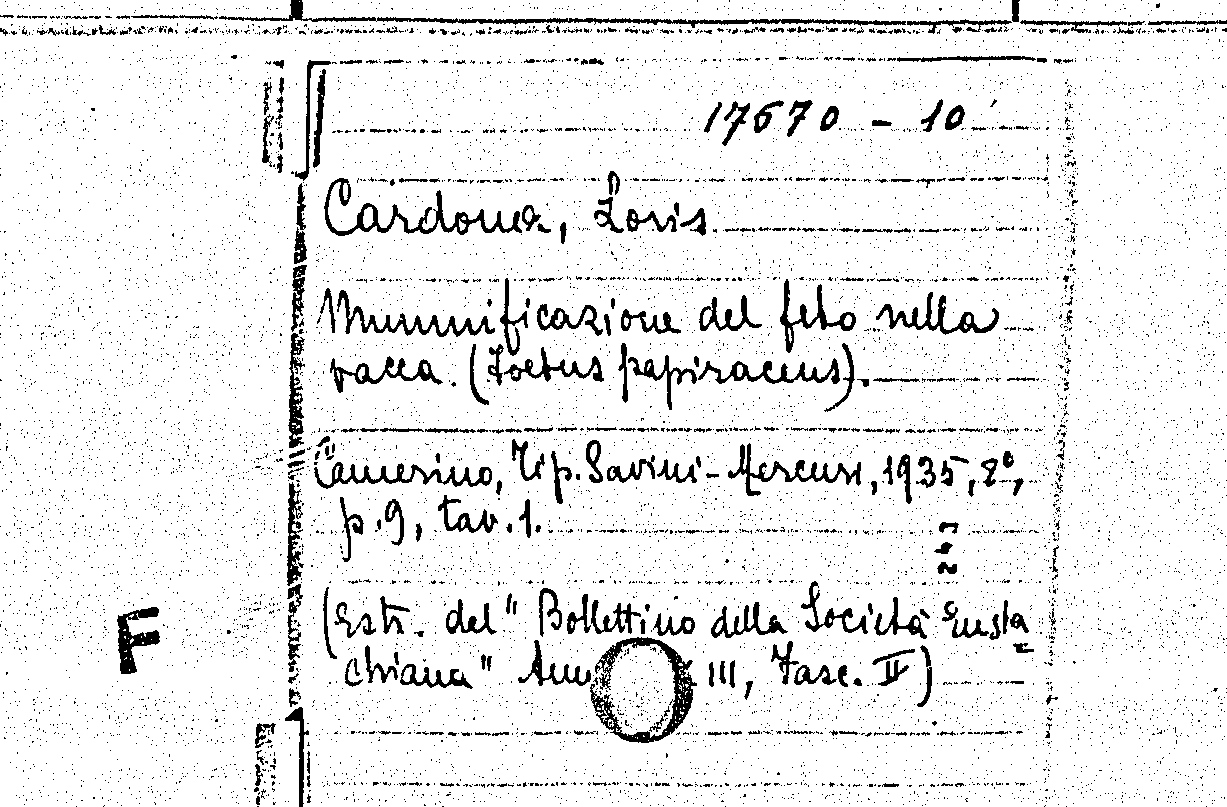 17670 - 10
Cardona, Loris
Mummificazione del feto nella
vacca. (Foetus papiraceus).
Camerino, Tip. Savini-Mercuri, 1935, 8°,
p.9, tav.1.
(Estr. del "Bollettino della Società Eusta
chiana" III, Fasc. II)
F